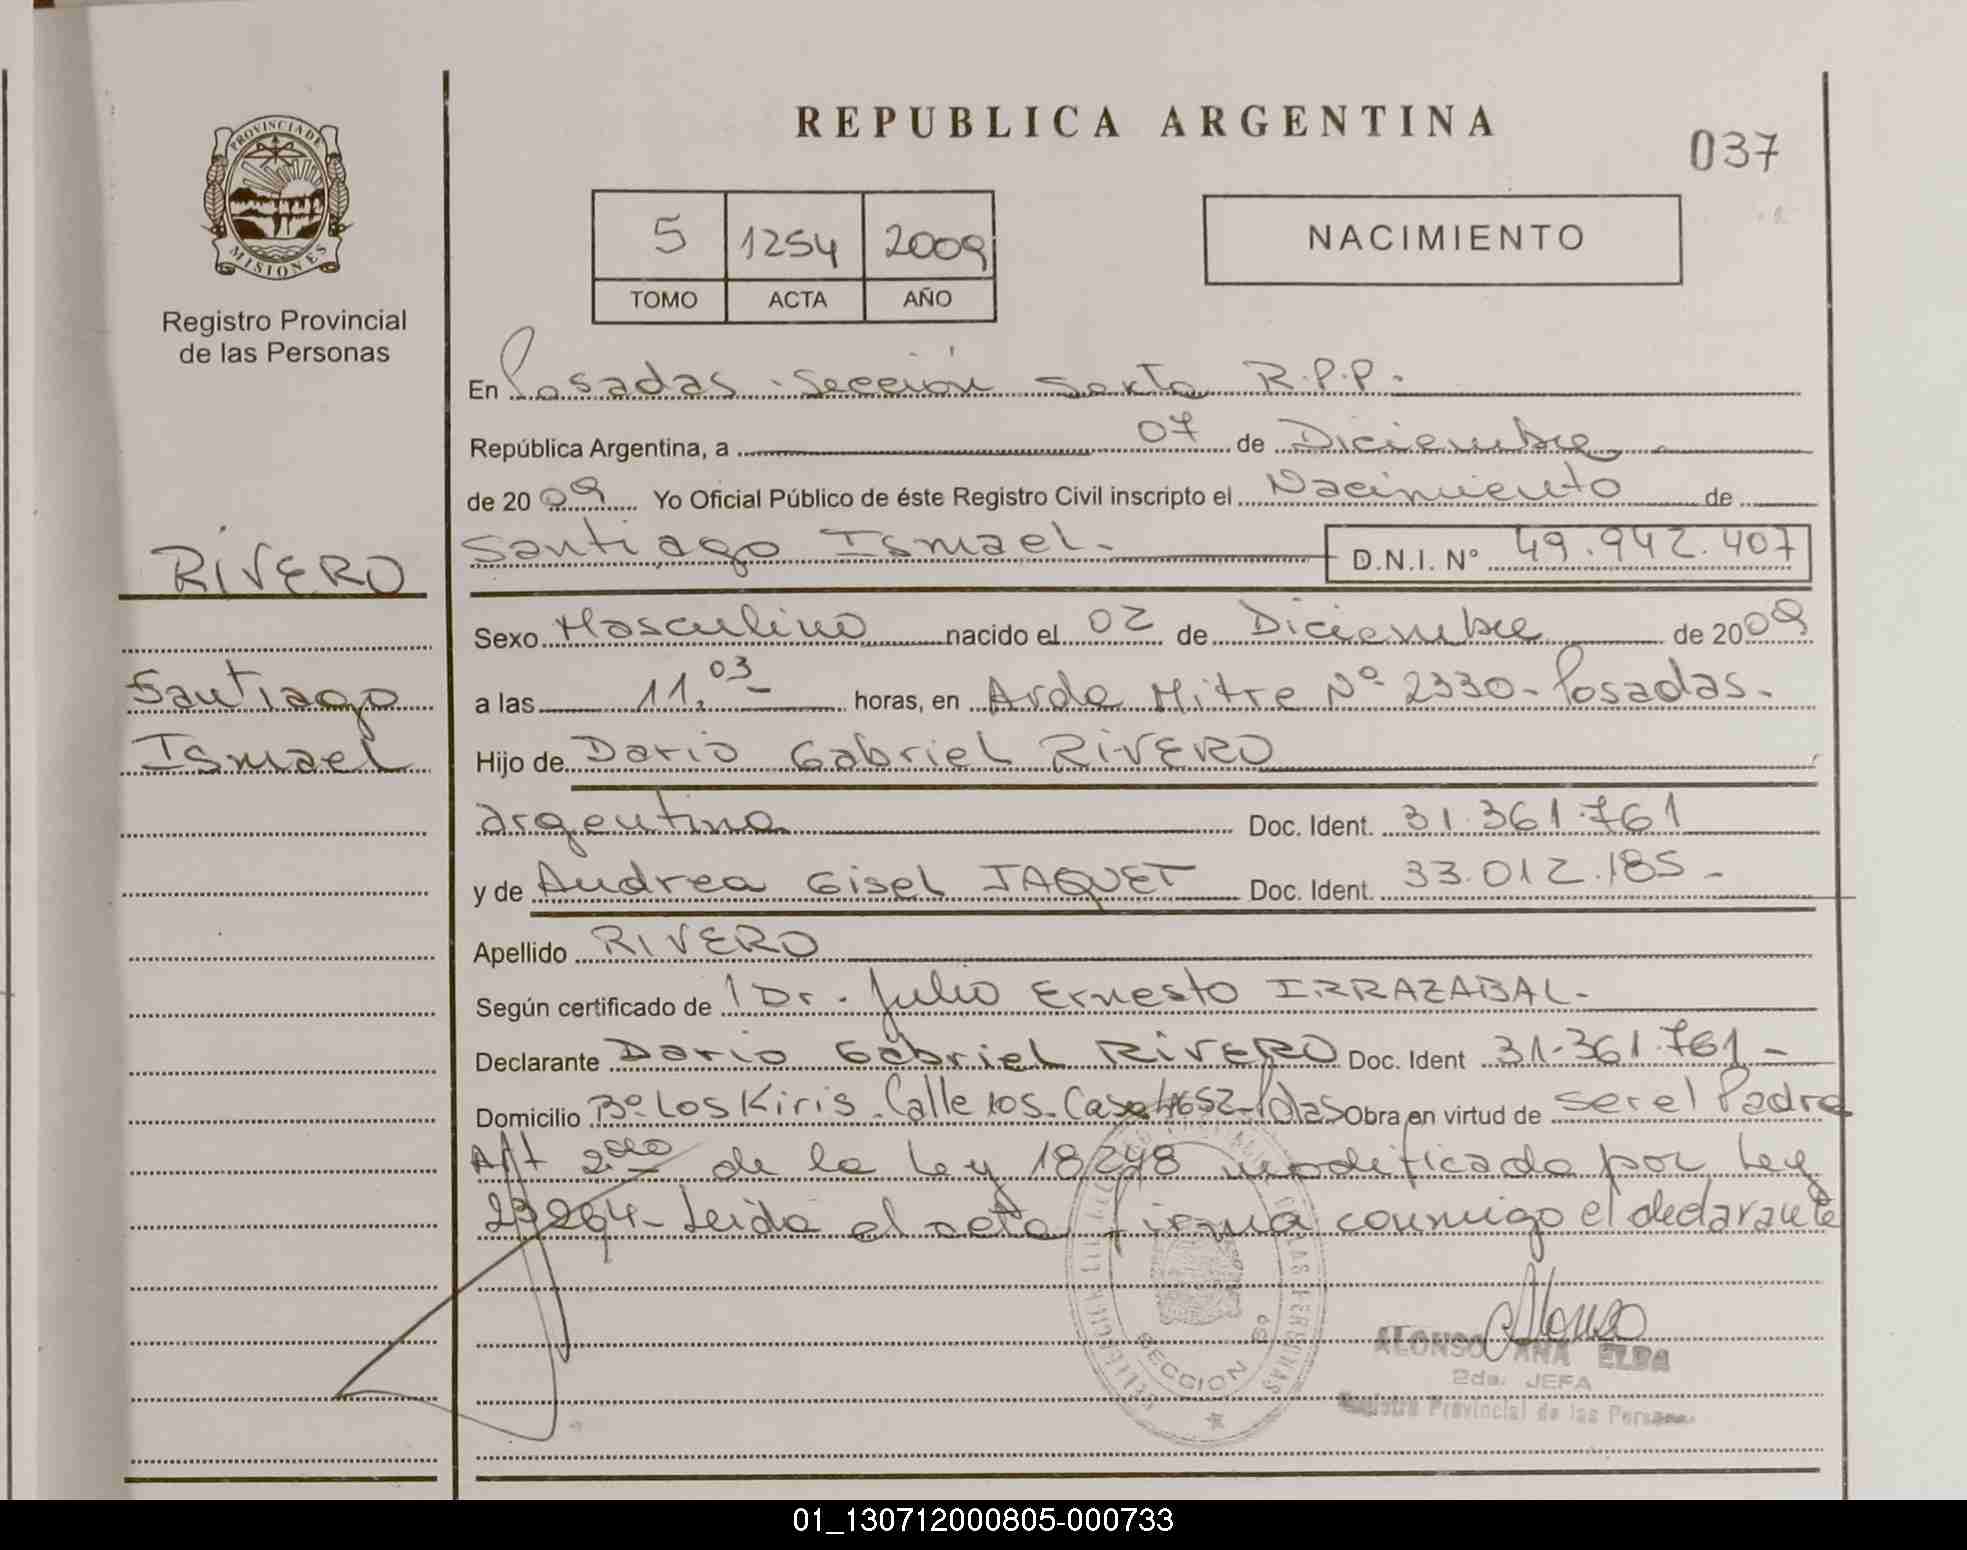 REPUBLICA ARGENTINA
037
PROVINCIA DE
MISIONES
Registro Provincial
de las Personas
5 1254 2009
TOMO ACTA AÑO
NACIMIENTO
En Posadas - Sección Sexta R.P.P.-
República Argentina, a 07 de Diciembre
de 2009 Yo Oficial Público de éste Registro Civil inscripto el Nacimiento de
RIVERO
Santiago Ismael.- D.N.I. Nº 49.942.407
Sexo Masculino nacido el 02 de Diciembre de 2009
Santiago
a las 11.03 horas, en Avda Mitre Nº 2330- Posadas-
Ismael
Hijo de Dario Gabriel RIVERO
argentina Doc. Ident. 31.361.761
y de Andrea Gisel JAQUET Doc. Ident. 33.012.185-
Apellido RIVERO
Según certificado de 1 Dr. Julio Ernesto IRRAZABAL-
Declarante Dario Gabriel RIVERO Doc. Ident 31.361.761-
Domicilio Bº Los Kiris - Calle 105- Casa 4652- Pdas Obra en virtud de ser el Padre
Art 2do de la Ley 18248 modificado por Ley
23264- Leida el acta firma conmigo el declarante
SECCION 6º
Alonso
ALONSO ANA ELBA
2da. JEFA
Registro Provincial de las Personas
01_130712000805-000733